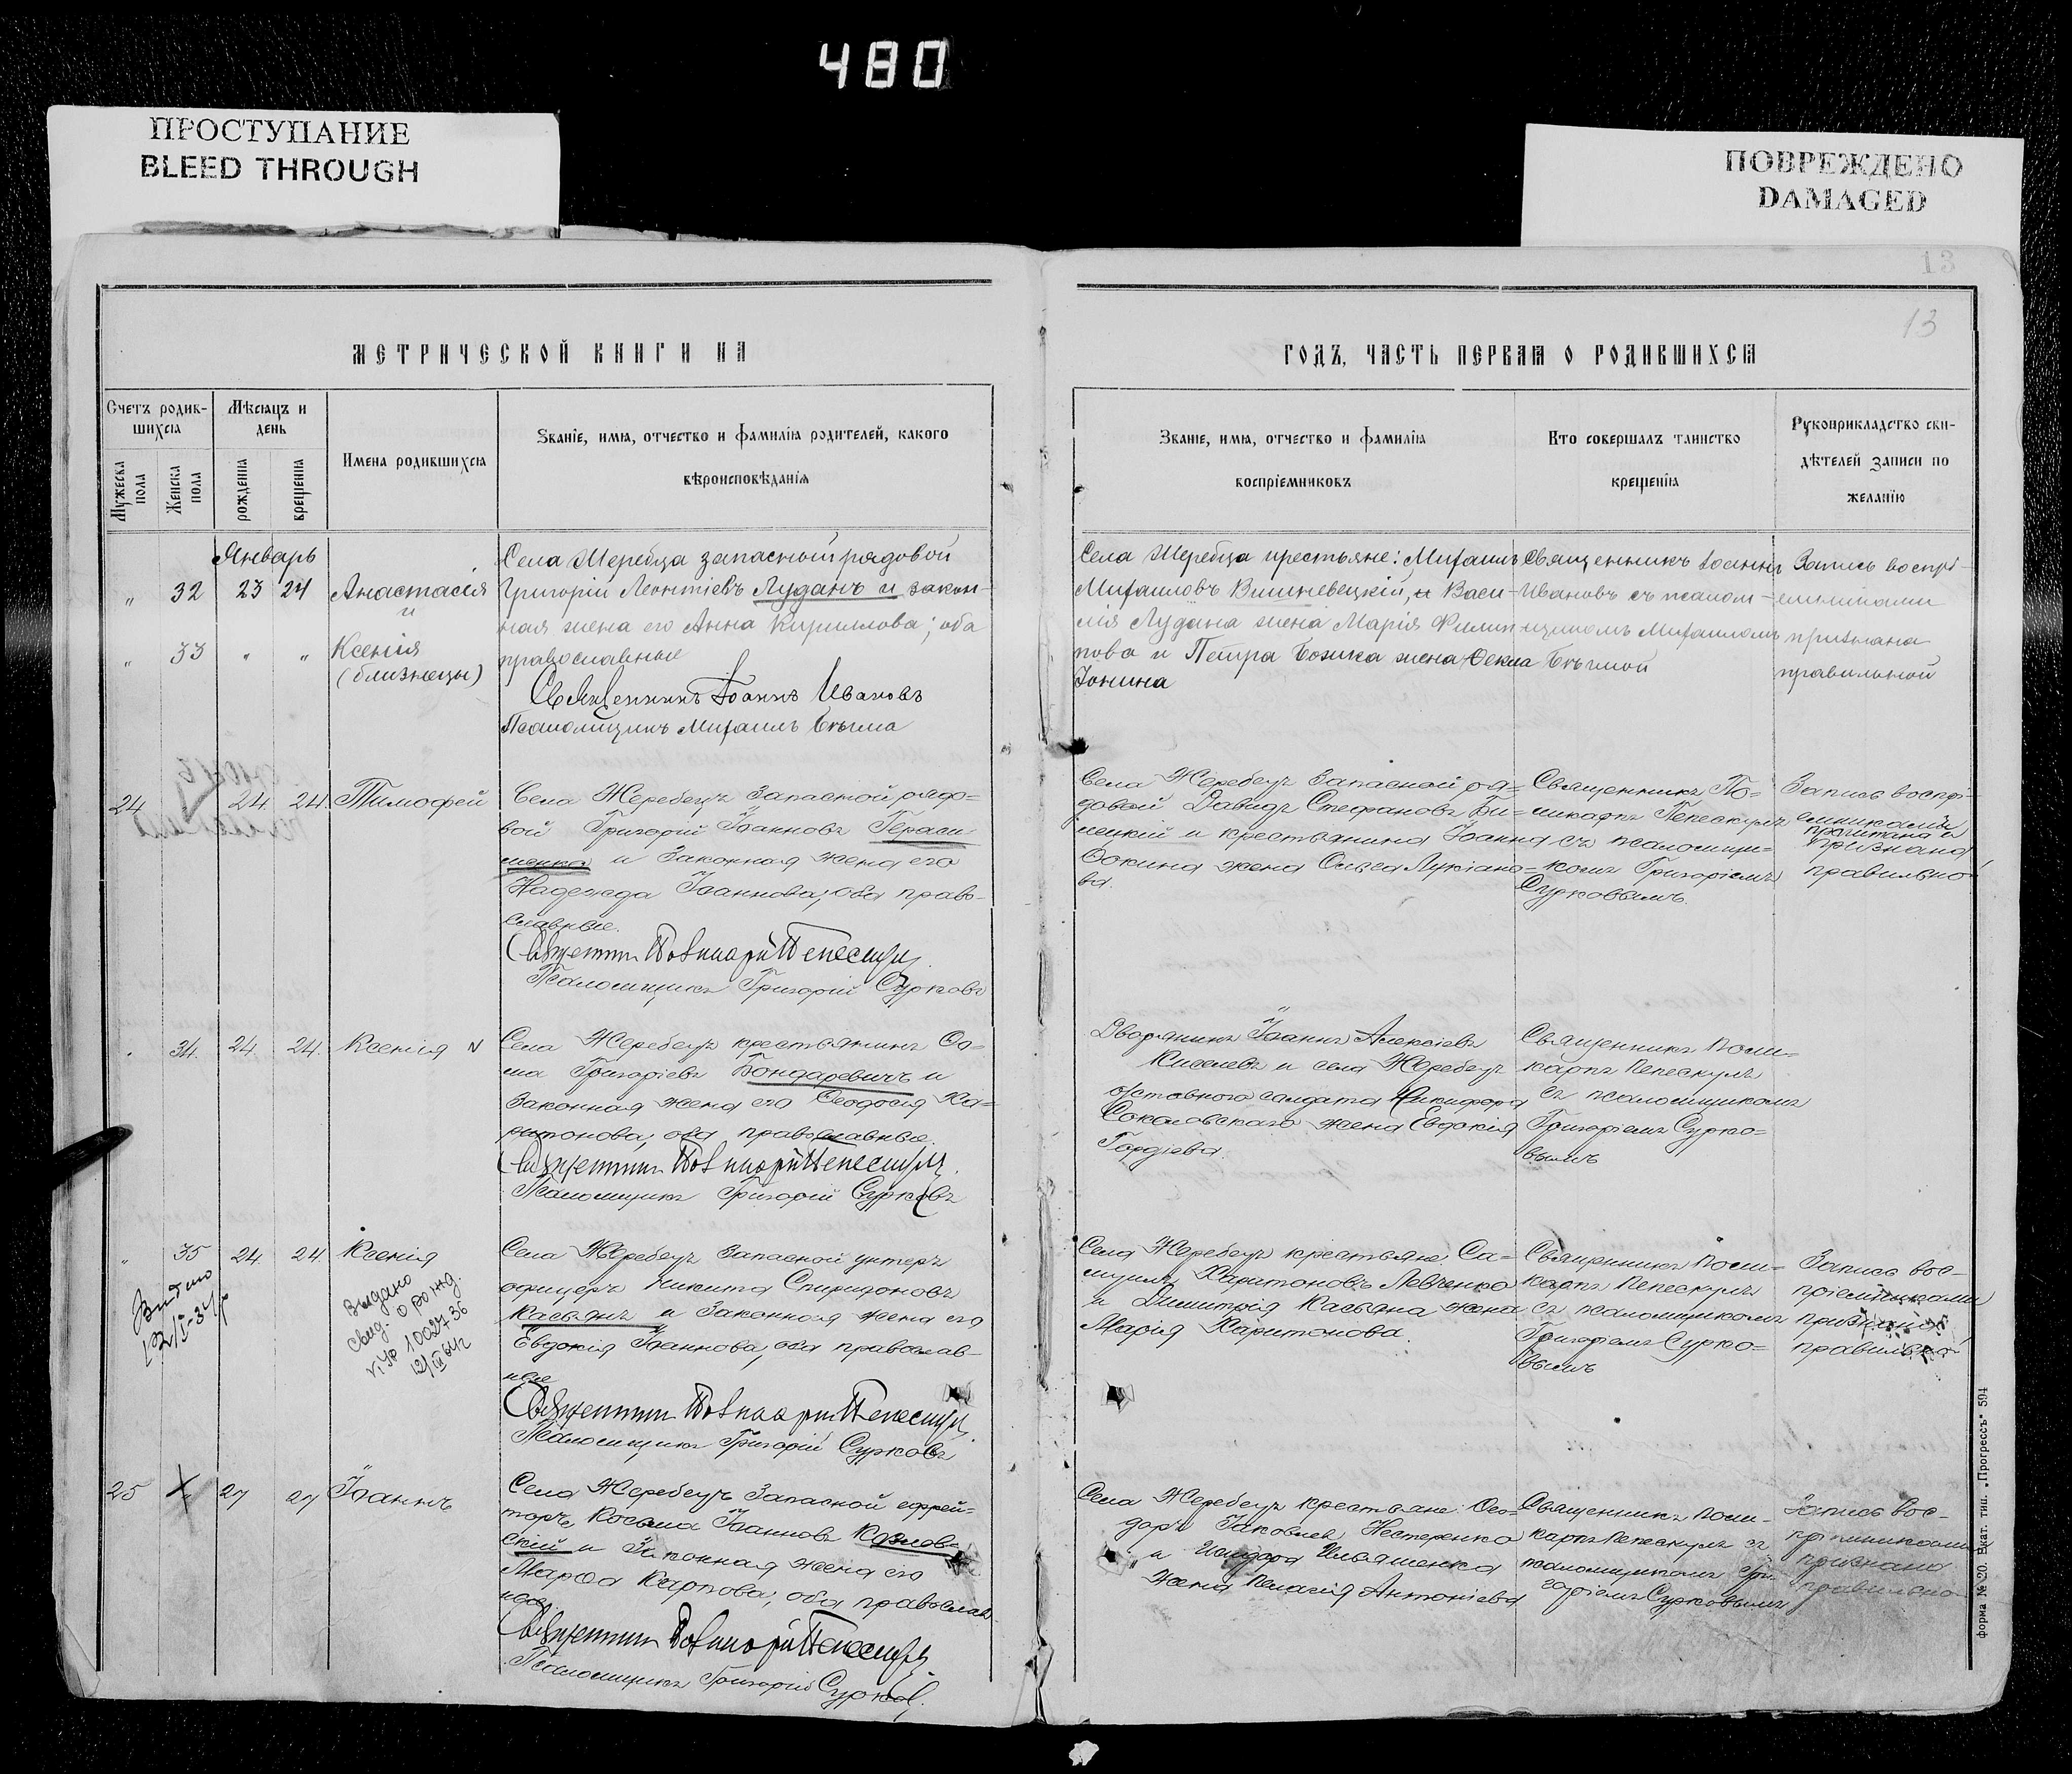 480
ПРОСТУПАНИЕ
BLEED THROUGH
ПОВРЕЖДЕНО
DAMAGED
13
13
МЕТРИЧЕСКОЙ КНИГИ НА
ГОДЪ, ЧАСТЬ ПЕРВАЯ О РОДИВШИХСЯ
Счетъ родив-
шихся
Мужеска пола
Женска пола
Мѣсяцъ и
день
рожденія
крещенія
Имена родившихся
Званіе, имя, отчество и фамилія родителей, какого
вѣроисповѣданія
Званіе, имя, отчество и фамилія
воспріемниковъ
Кто совершалъ таинство
крещенія
Рукоприкладство сви-
дѣтелей записи по
желанію
Январь
„ 32 23 24 Анастасія
и
„ 33 „ „ Ксенія
(близнецы)
Села Жеребца запасный рядовой
Григорій Леонтіевъ Луданъ и закон-
ная жена его Анна Кириллова; оба
православные
Священникъ Іоаннъ Ивановъ
Псаломщикъ Михаилъ Бѣгма
Села Жеребца крестьяне: Михаилъ
Михаиловъ Вишневецкій, и Васи-
лія Лудана жена Марія Филип-
пова и Петра Божка жена Ѳекла
Іонина
Священникъ Іоаннъ
Ивановъ съ псалом-
щикомъ Михаиломъ
Бѣгмой
Запись воспрі-
емниками
признана
правильной
24 24 24 Тимофей
Села Жеребецъ Запасной рядо-
вой Григорій Іоанновъ Гераси-
менко и Законная жена его
Надежда Іоаннова; оба право-
славные.
Священникъ Поликарпъ Пепескулъ
Псаломщикъ Григорій Сурковъ
Села Жеребецъ Запасной ря-
довой Давидъ Стефановъ Би-
лецкій и крестьянина Іоанна
Ѳокина жена Ольга Лукіано-
ва.
Священникъ По-
ликарпъ Пепескулъ
съ псаломщи-
комъ Григоріемъ
Сурковымъ.
Запись воспрі-
емниками
прочитана и
признана
правильно
„ 34. 24. 24. Ксенія
Села Жеребецъ крестьянинъ Ѳо-
ма Григоріевъ Бондаревичъ и
Законная жена его Ѳеодосія Ха-
ритонова; оба православные.
Священникъ Поликарпъ Пепескулъ.
Псаломщикъ Григорій Сурковъ
Дворянинъ Іоаннъ Алексіевъ
Киселевъ и села Жеребецъ
отставного солдата Никифора
Соколовскаго жена Евдокія
Гордіева.
Священникъ Поли-
карпъ Пепескулъ
съ псаломщикомъ
Григоріемъ Сурко-
вымъ
„ 35 24 24 Ксенія
12/I-34
Выдано
свид. о рожд.
1002736
12/III 64г
Села Жеребецъ Запасной унтеръ
офицеръ Никита Спиридоновъ
Касьянъ и Законная жена его
Евдокія Іоаннова; оба православ-
ные
Священникъ Поликарпъ Пепескулъ
Псаломщикъ Григорій Сурковъ
Села Жеребецъ крестьяне: Са-
муилъ Харитоновъ Левченко
и Димитрія Касьяна жена
Марія Харитонова.
Священникъ Поли-
карпъ Пепескулъ
съ псаломщикомъ
Григоріемъ Сурко-
вымъ
Запись вос-
пріемниками
признана
правильно
25 27 27 Іоаннъ
Села Жеребецъ Запасной ефрей-
торъ Косьма Іоанновъ Козлов-
скій и Законная жена его
Марфа Карпова; оба православ-
ные.
Священникъ Поликарпъ Пепескулъ
Псаломщикъ Григорій Сурковъ
Села Жеребецъ крестьяне: Ѳео-
доръ Іаковлевъ Нестеренко
и Исидора Ильяшенка
жена Пелагія Антоніева
Священникъ Поли-
карпъ Пепескулъ съ
псаломщикомъ Гри-
горіемъ Сурковымъ
Запись вос-
пріемниками
признана
правильно
форма № 20. Екат. тип. „Прогрессъ" 594